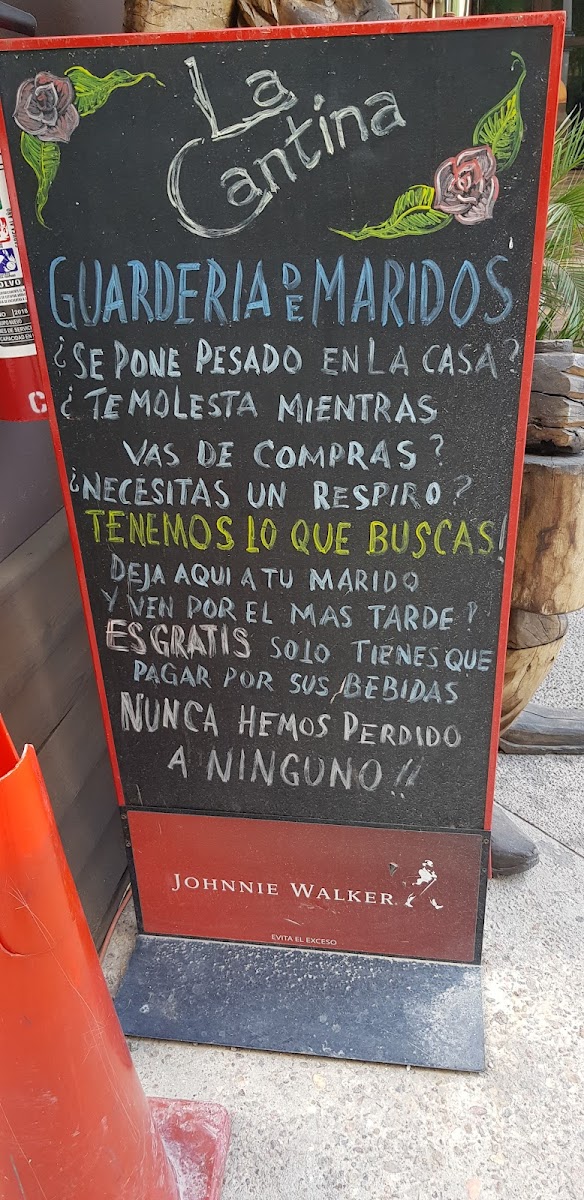 La
Cantina
GUARDERIA DE MARIDOS
¿SE PONE PESADO EN LA CASA?
¿TE MOLESTA MIENTRAS
VAS DE COMPRAS?
¿NECESITAS UN RESPIRO?
TENEMOS LO QUE BUSCAS!
DEJA AQUI A TU MARIDO
Y VEN POR EL MAS TARDE!
ES GRATIS SOLO TIENES QUE
PAGAR POR SUS BEBIDAS
NUNCA HEMOS PERDIDO
A NINGUNO!!
JOHNNIE WALKER
EVITA EL EXCESO
C